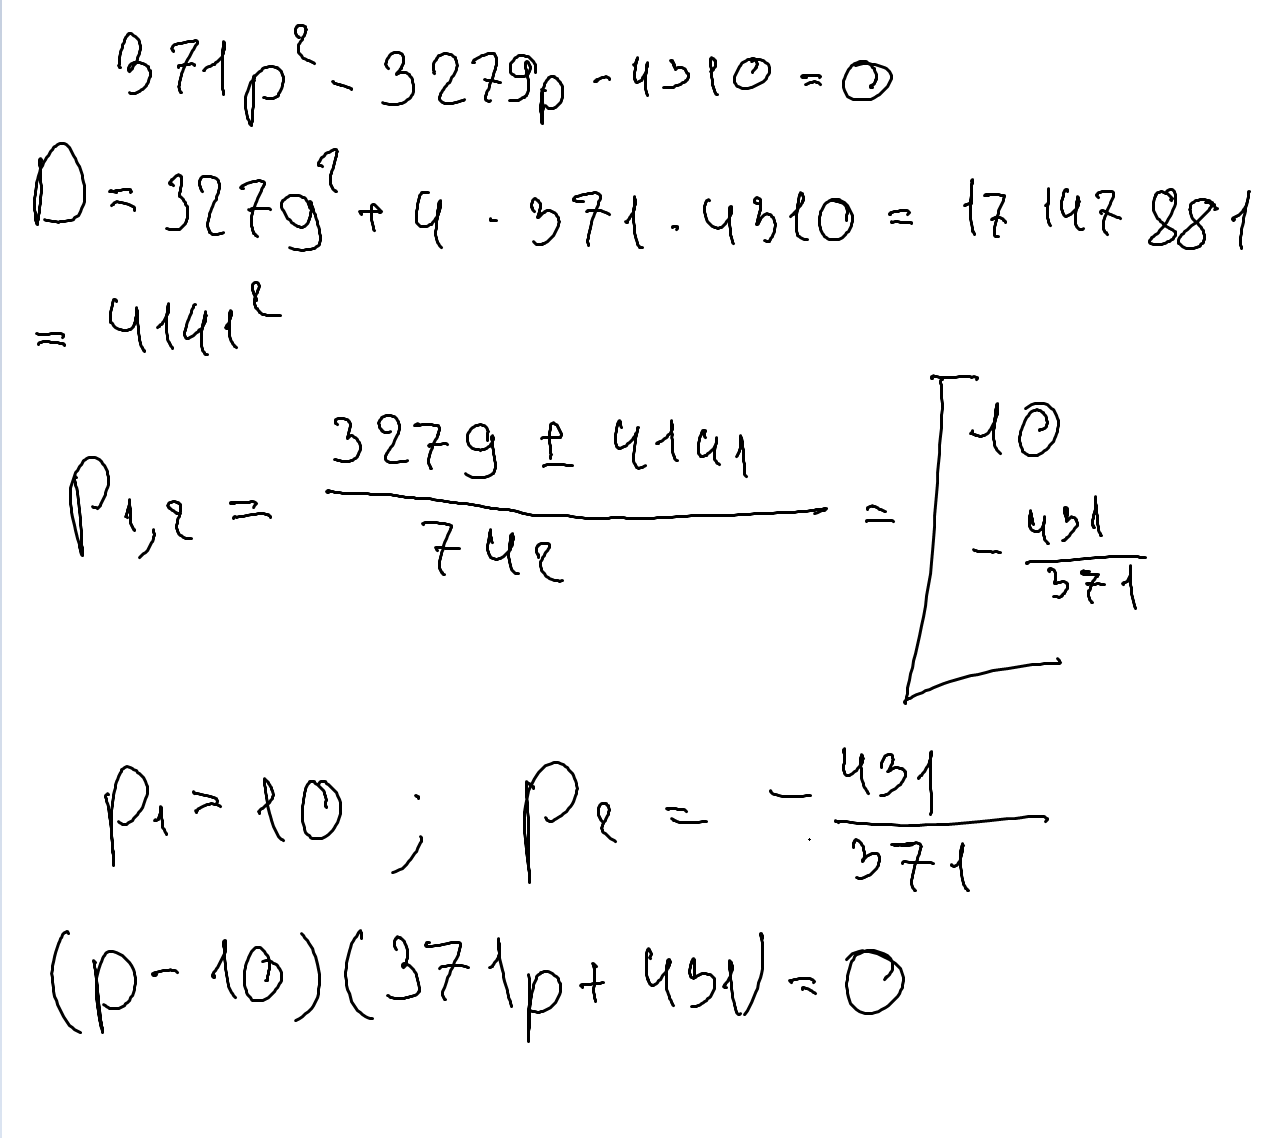 371p² - 3279p - 4310 = 0
D = 3279² + 4 · 371 · 4310 = 17 147 881
= 4141²
p₁,₂ = (3279 ± 4141)/742 = [ 10 ; - 431/371
p₁ = 10 ; p₂ = - 431/371
(p - 10)(371p + 431) = 0